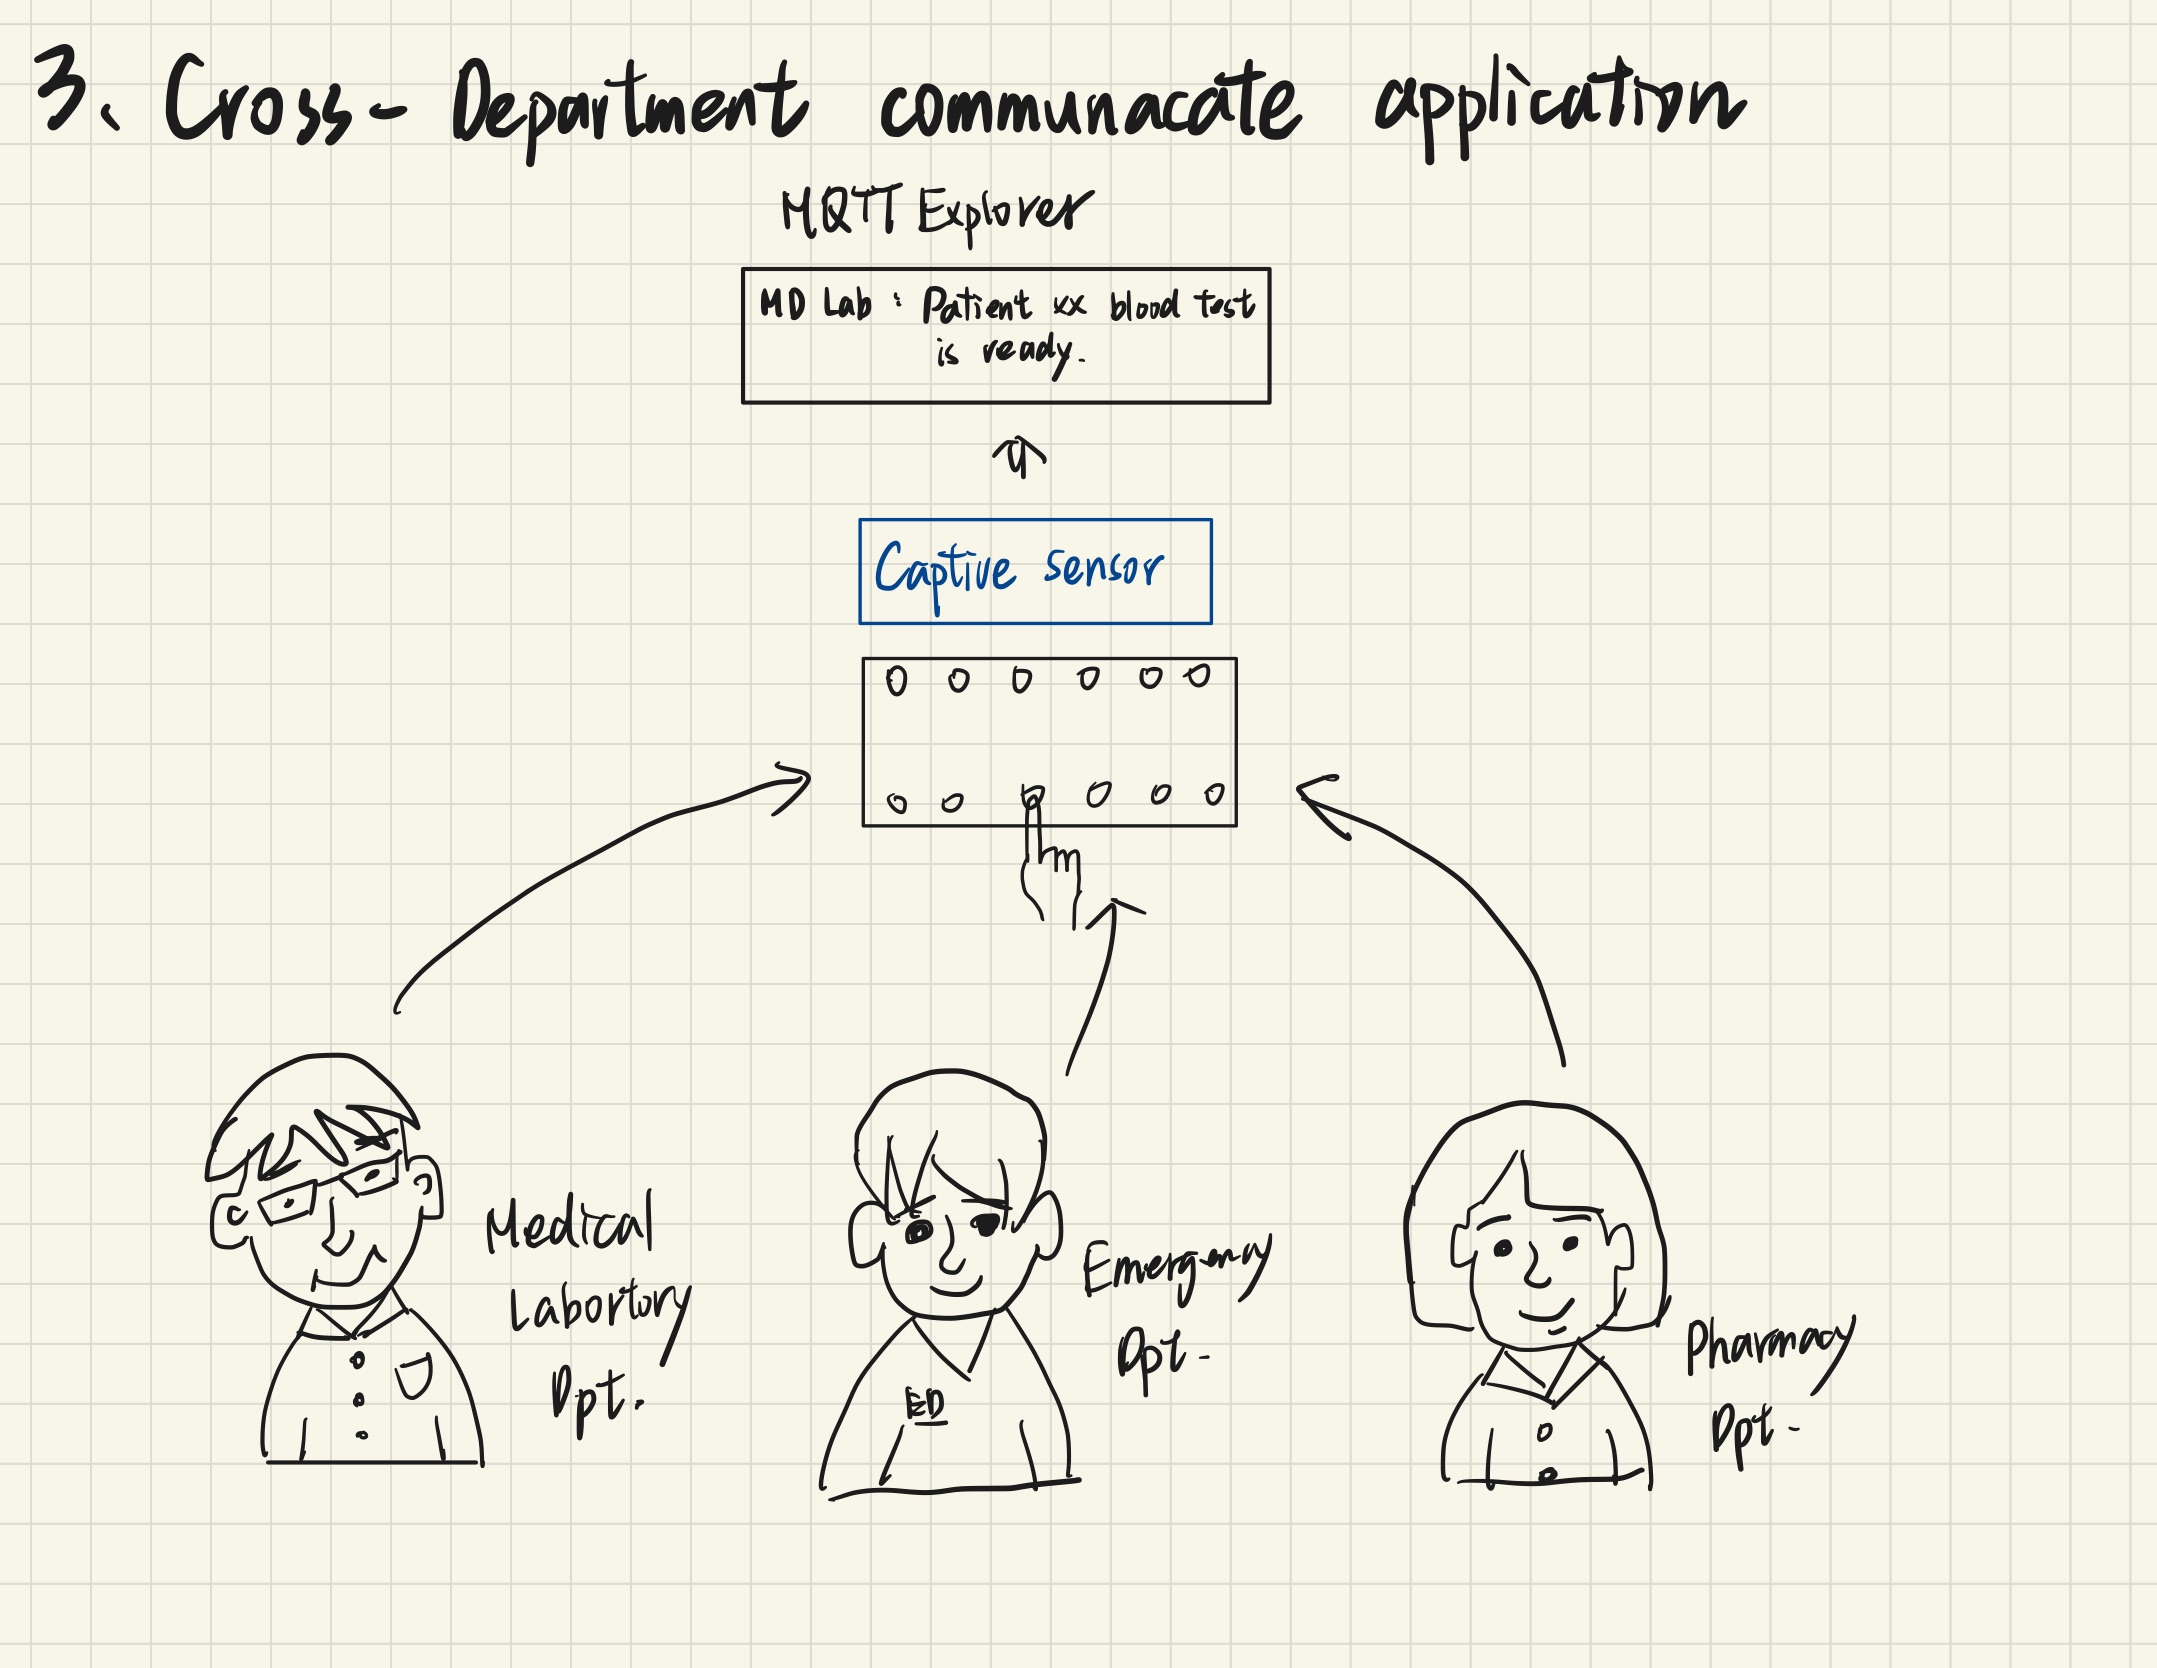 3、Cross-Department communacate application
MQTT Explorer
MD Lab : Patient xx blood test
is ready.
Captive sensor
Medical
Labortory
Dpt.
Emergency
Dpt-
ED
Pharmacy
Dpt-